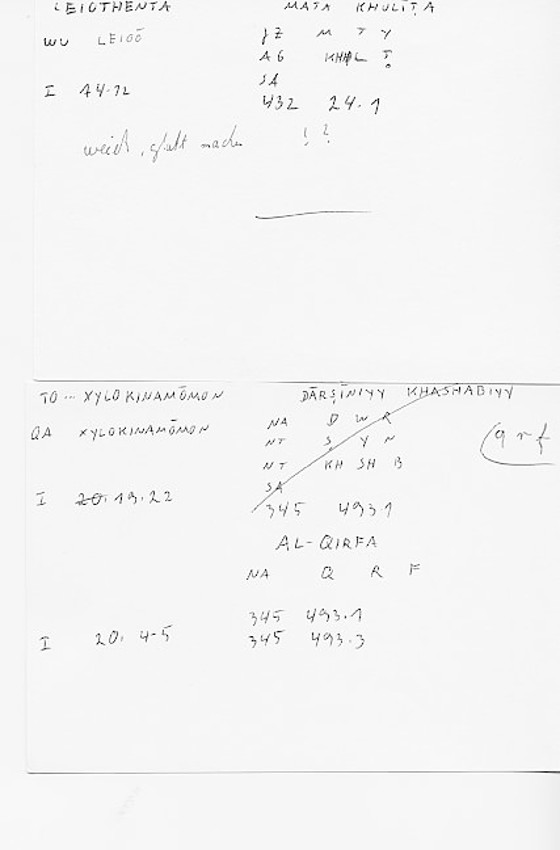 LEIOTHENTA MATA KHULIṬA
WU LEIOŌ JZ M T Y
AG KH L Ṭ
SA
I 14.12 432 24.1
weich, glatt machen ! ?
TO ... XYLOKINAMŌMON DĀRṢĪNIYY KHASHABIYY
QA XYLOKINAMŌMON NA D W R
NT Ṣ Y N
NT KH SH B
SA
I 20. 19.22 345 493.1
q r f
AL-QIRFA
NA Q R F
345 493.1
I 20. 4-5 345 493.3